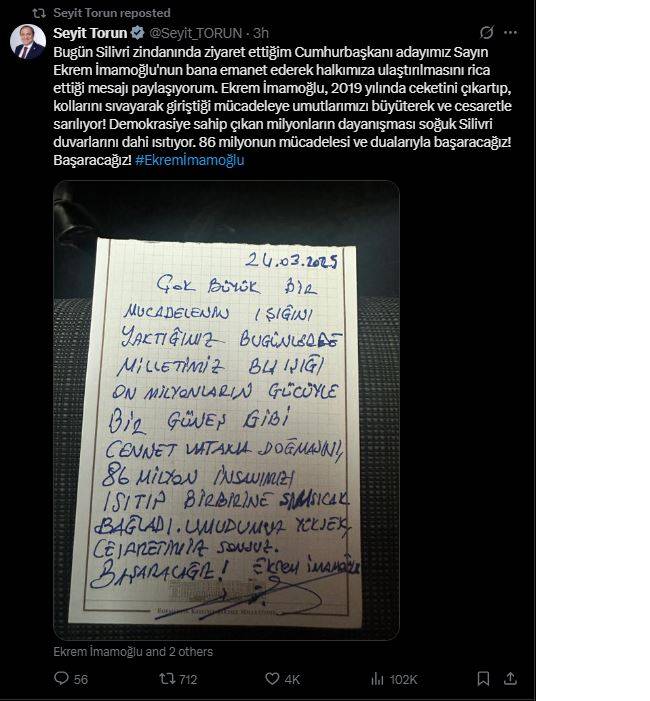 Seyit Torun reposted
Seyit Torun @Seyit_TORUN · 3h
Bugün Silivri zindanında ziyaret ettiğim Cumhurbaşkanı adayımız Sayın
Ekrem İmamoğlu'nun bana emanet ederek halkımıza ulaştırılmasını rica
ettiği mesajı paylaşıyorum. Ekrem İmamoğlu, 2019 yılında ceketini çıkartıp,
kollarını sıvayarak giriştiği mücadeleye umutlarımızı büyüterek ve cesaretle
sarılıyor! Demokrasiye sahip çıkan milyonların dayanışması soğuk Silivri
duvarlarını dahi ısıtıyor. 86 milyonun mücadelesi ve dualarıyla başaracağız!
Başaracağız! #Ekremİmamoğlu
24.03.2025
ÇOK BÜYÜK BİR
MÜCADELENİN IŞIĞINI
YAKTIĞIMIZ BUGÜNLERDE
MİLLETİMİZ BU IŞIĞI
ON MİLYONLARIN GÜCÜYLE
BİR GÜNEŞ GİBİ
CENNET VATANA DOĞMASINI,
86 MİLYON İNSANIMIZI
ISITIP BİRBİRİNE SIMSICAK
BAĞLADI. UMUDUMUZ YÜKSEK,
CESARETİMİZ SONSUZ.
BAŞARACAĞIZ! EKREM İMAMOĞLU
Ekrem İmamoğlu and 2 others
56 712 4K 102K